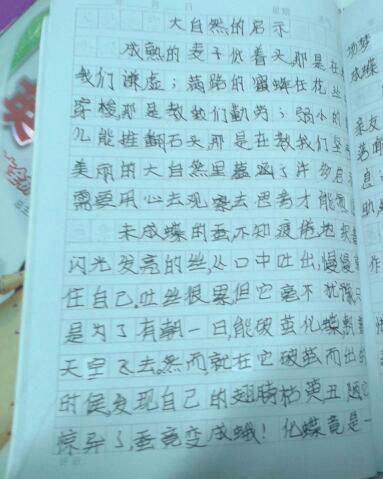 大自然的启示
成熟的麦子低着头,那是在
我们谦虚；满路的蜜蜂在花丛
穿梭,那是教我们勤劳；弱小的
儿能推翻石头,那是在教我们坚
美丽的大自然里蕴涵了许多启
需要用心去观察去思考才能
未成蝶的蚕,不知疲倦地
闪光发亮的丝,从口中吐出,慢慢
住自己.吐丝很累,但它毫不犹豫
是为了有朝一日,能破茧化蝶,
天空飞去.然而就在它破茧而出的
时候,发现自己的翅膀枯萸丑
惊异了,蚕竟变成蛾！化蝶竟是一
成蝶
亲友